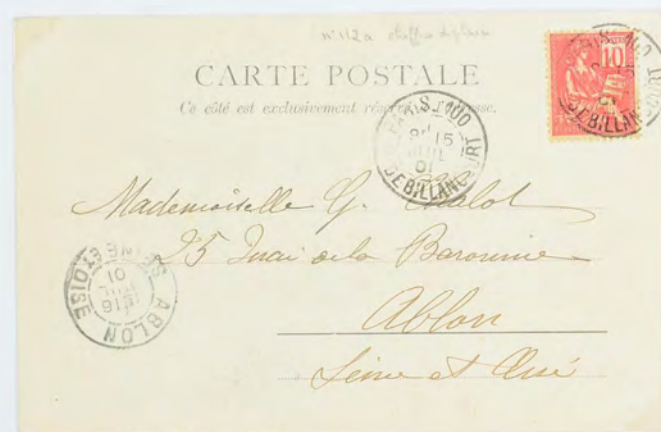 n° 112a chiffres déplacés
CARTE POSTALE
Ce côté est exclusivement réservé à l'adresse.
10
PARIS. 100
15
JUIL
01
DE BILLANCOURT
Mademoiselle G. Chalot
25 Quai de la Baronnie
Ablon
Seine et Oise
ABLON
SEINE ET OISE
16
JUIL
01